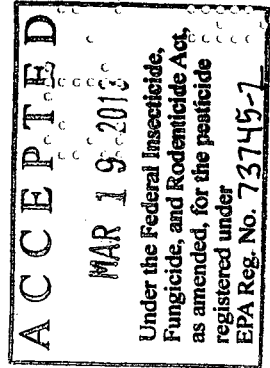 ACCEPTED
MAR 19 2013
Under the Federal Insecticide,
Fungicide, and Rodenticide Act,
as amended, for the pesticide
registered under
EPA Reg. No. 73745-7